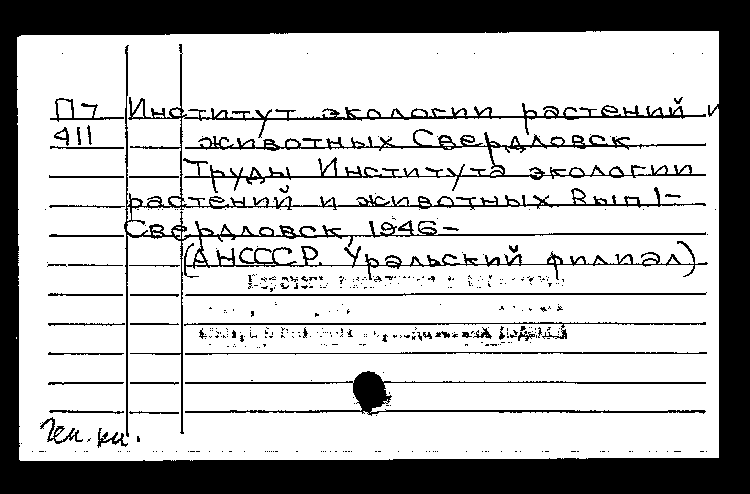 П7 Институт экологии растений и
411 животных Свердловск
Труды Института экологии
растений и животных Вып 1-
Свердловск, 1946-
(АНСССР. Уральский филиал)
Ген. кат.